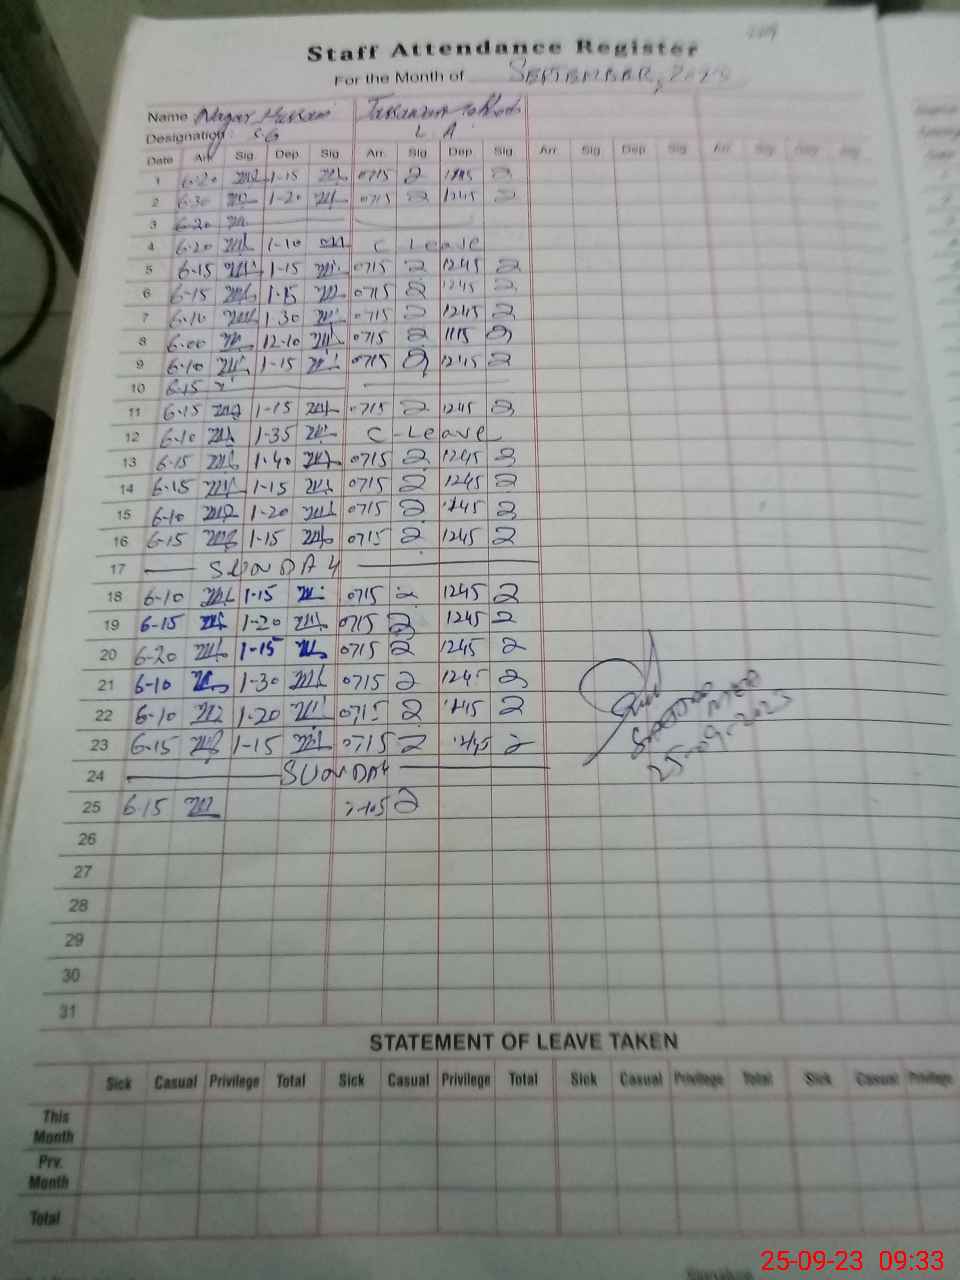 Staff Attendance Register
For the Month of SEPTEMBER, 2023
Name Hussain
Designation: S G L A
Date Arr. Sig. Dep. Sig. Arr. Sig. Dep. Sig. Arr. Sig. Dep. Sig. Arr.
1 6-20 1-15 0715 1245
2 6-30 1-20 0715 1245
3 6-20
4 6-20 1-10 C Leave
5 6-15 1-15 0715 1245
6 6-15 1-15 0715 1245
7 6-10 1-30 0715 1245
8 6-00 12-10 0715 1115
9 6-10 1-15 0715 1245
10 6-15
11 6-15 1-15 0715 1245
12 6-10 1-35 C-Leave
13 6-15 1-40 0715 1245
14 6-15 1-15 0715 1245
15 6-10 1-20 0715 1245
16 6-15 1-15 0715 1245
17 SUNDAY
18 6-10 1-15 0715 1245
19 6-15 1-20 0715 1245
20 6-20 1-15 0715 1245
21 6-10 1-30 0715 1245
22 6-10 1-20 0715 1245
23 6-15 1-15 0715 1245
25-09-2023
24 SUNDAY
25 6-15
26
27
28
29
30
31
STATEMENT OF LEAVE TAKEN
Sick Casual Privilege Total Sick Casual Privilege Total Sick Casual Privilege Total Sick Casual Privilege
This Month
Prv. Month
Total
25-09-23 09:33